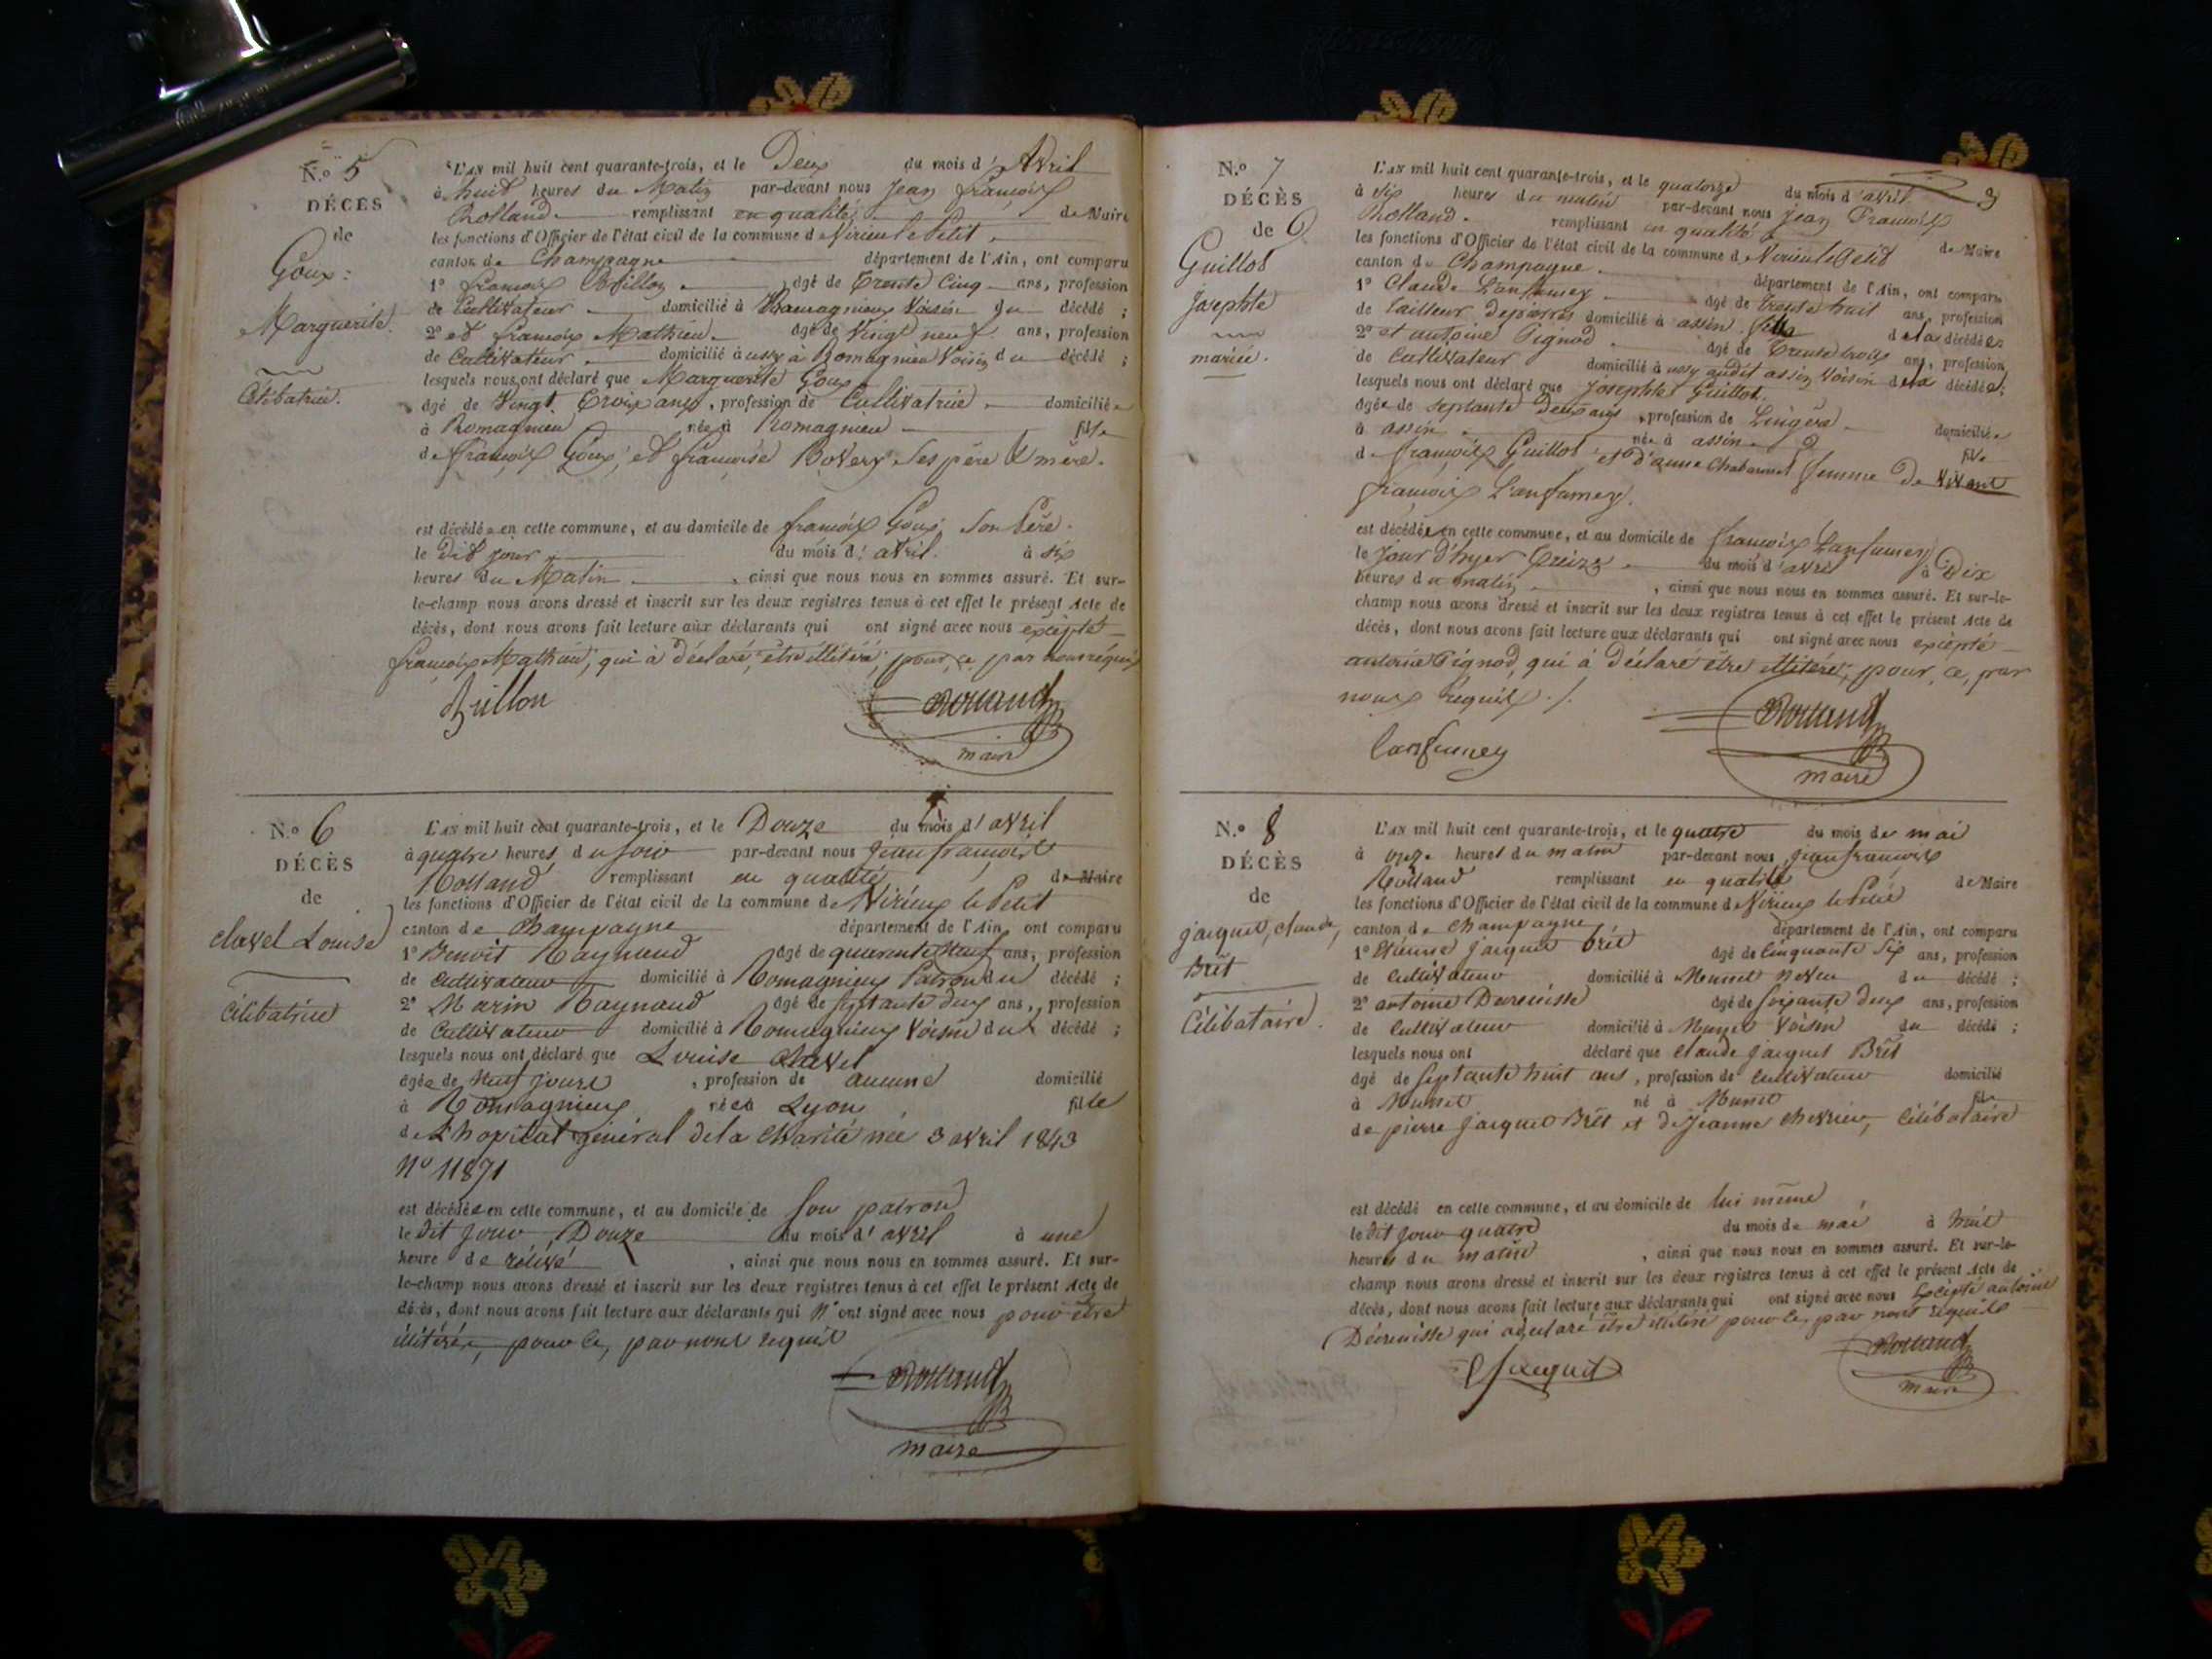 N.o 5
DÉCÈS
de
Goux:
Marguerite.
Célibatrice.
L'AN mil huit cent quarante-trois, et le Deux du mois d'Avril
à huit heures du Matin par-devant nous Jean françois
Rolland remplissant en qualité de Maire
les fonctions d'Officier de l'état civil de la commune de Virieu le Petit
canton de Champagne département de l'Ain, ont comparu
1º françois âgé de Trente Cinq ans, profession
de Cultivateur domicilié à Voisin du décédé ;
2º et françois Mathieu. âgé de Vingt neuf ans, profession
de Cultivateur domicilié aussy à Romagnieu Voisin du décédé ;
lesquels nous ont déclaré que Marguerite Goux
âgé de Vingt Trois ans, profession de Cultivatrice domiciliée
à Romagnieu née à Romagnieu fille
de françois Goux, et françoise Bovery Ses père & mère.
est décédée en cette commune, et au domicile de françois Goux, son Père.
le dit jour du mois d'avril. à six
heures du Matin, ainsi que nous nous en sommes assuré. Et sur-
le-champ nous avons dressé et inscrit sur les deux registres tenus à cet effet le présent Acte de
décès, dont nous avons fait lecture aux déclarants qui ont signé avec nous excepté
françois Mathieu, qui à déclaré être illitéré, pour ce par nous réquis
Rolland
maire
N.o 6
DÉCÈS
de
clavel Louise
Célibatrice
L'AN mil huit cent quarante-trois, et le Douze du mois d'avril
à quatre heures du soir par-devant nous jean françois
Rolland remplissant en qualité de Maire
les fonctions d'Officier de l'état civil de la commune de Virieux le Petit
canton de Champagne département de l'Ain, ont comparu
1º Benoit Raynaud âgé de quarante Neuf ans, profession
de Cultivateur domicilié à Romagnieux Patron du décédé ;
2º Marin Raynaud âgé de septante deux ans, profession
de Cultivateur domicilié à Romagnieux Voisin du décédé ;
lesquels nous ont déclaré que Louise Clavel
âgée de Neuf jours, profession de aucune domicilié
à Romagnieux née à Lyon fille
de L'hopital général de la Charité née 3 avril 1843
Nº 11871
est décédée en cette commune, et au domicile de son patron
le dit jour Douze du mois d'avril à une
heure de rélevé, ainsi que nous nous en sommes assuré. Et sur-
le-champ nous avons dressé et inscrit sur les deux registres tenus à cet effet le présent Acte de
décès, dont nous avons fait lecture aux déclarants qui N'ont signé avec nous pour être
illitéré, pour ce, par nous requis
Rolland
maire
3
N.o 7
DÉCÈS
de
Guillot
Josephte
mariée.
L'AN mil huit cent quarante-trois, et le quatorze du mois d'avril
à six heures du matin par-devant nous Jean François
Rolland. remplissant en qualité de Maire
les fonctions d'Officier de l'état civil de la commune de Virieu le Petit
canton de Champagne. département de l'Ain, ont comparu
1º Claude Lanfumey âgé de trente huit ans, profession
de tailleur de pierres domicilié à assin. de la décédée
2º et antoine Pignod. âgé de Trente trois ans, profession
de Cultivateur domicilié aussy audit assin Voisin de la décédée;
lesquels nous ont déclaré que Josephte Guillot.
âgée de septante Deux ans, profession de Lingère domiciliée
à assin née à assin fille
de françois Guillot et d'anne Chabannet femme De Vivant
françois Lanfumey.
est décédée en cette commune, et au domicile de françois Lanfumey
le Jour d'hyer Treize du mois d'avril à Dix
heures du matin, ainsi que nous nous en sommes assuré. Et sur-le-
champ nous avons dressé et inscrit sur les deux registres tenus à cet effet le présent Acte de
décès, dont nous avons fait lecture aux déclarants qui ont signé avec nous excepté
antoine Pignod, qui à déclaré être illitéré, pour ce, par
nous requis ./.
Lanfumey
Rolland
maire
N.o 8
DÉCÈS
de
jacquet, claude,
Brët
Célibataire.
L'AN mil huit cent quarante-trois, et le quatre du mois de mai
à onze heures du matin par-devant nous jean françois
Rolland remplissant en qualité de Maire
les fonctions d'Officier de l'état civil de la commune de Virieux le Petit
canton de Champagne département de l'Ain, ont comparu
1º Etienne jacquet brët âgé de Cinquante Six ans, profession
de Cultivateur domicilié à Munet Neveu du décédé ;
2º antoine âgé de soixante deux ans, profession
de Cultivateur domicilié à Munet Voisin du décédé ;
lesquels nous ont déclaré que Claude jacquet Brët
âgé de septante huit ans, profession de Cultivateur domicilié
à Munet né à Munet fils
de pierre jacquet Brët et de Jeanne Chevrier, Célibataire
est décédé en cette commune, et au domicile de lui même
le dit jour quatre du mois de mai à huit
heures du matin, ainsi que nous nous en sommes assuré. Et sur-le-
champ nous avons dressé et inscrit sur les deux registres tenus à cet effet le présent Acte de
décès, dont nous avons fait lecture aux déclarants qui ont signé avec nous Excepté antoine
qui a déclaré être illitéré pour ce, par nous requis
Jacquet
Rolland
maire